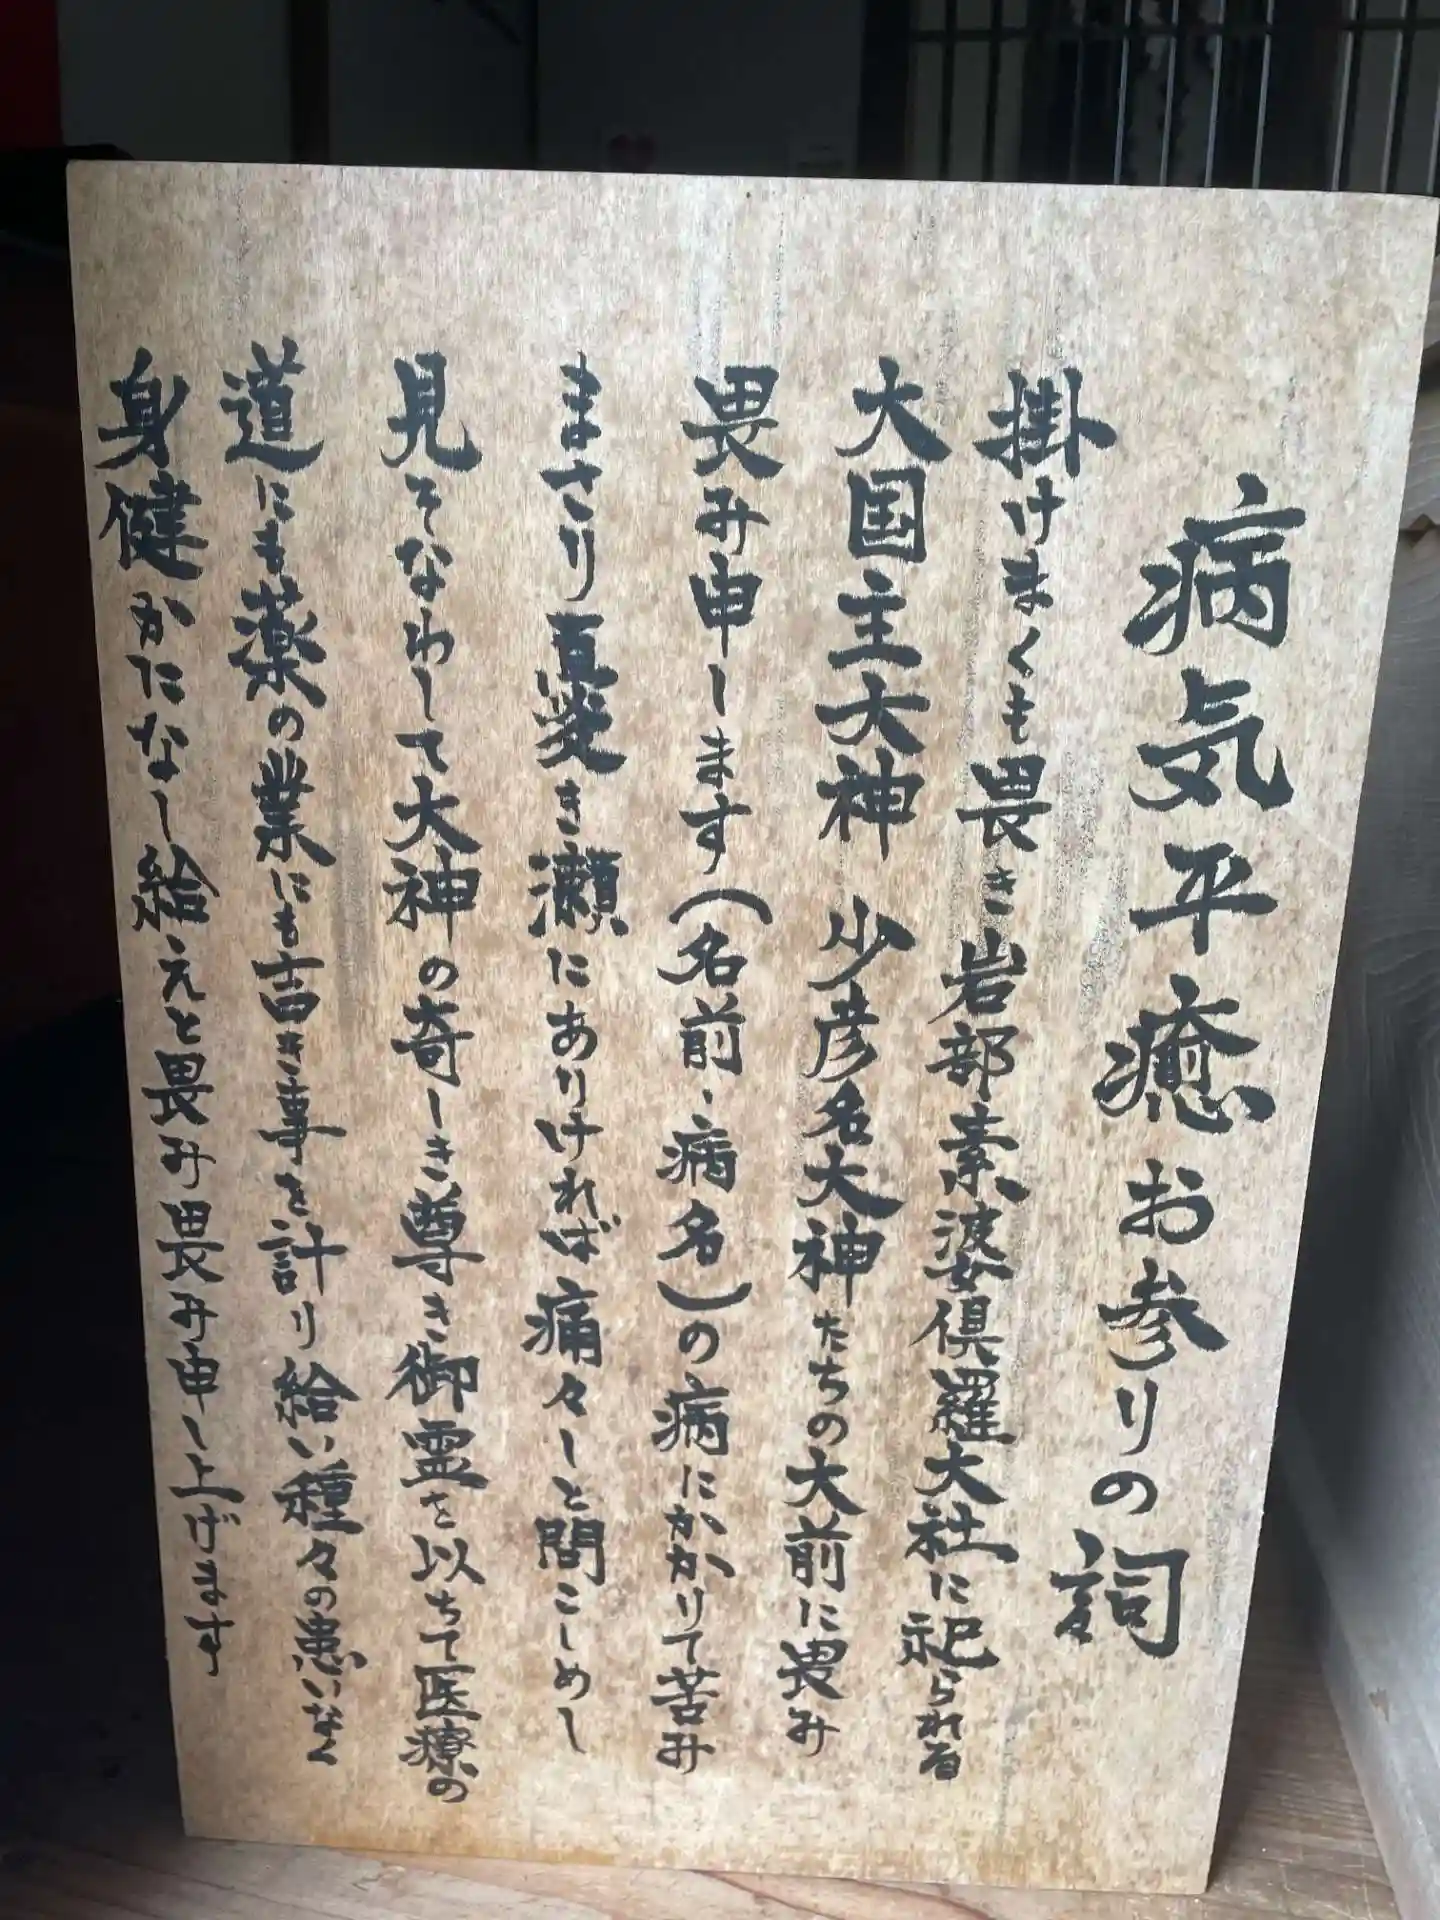 病気平癒お参りの詞
掛けまくも畏き岩部素婆倶羅大社に祀られる
大国主大神 少彦名大神たちの大前に畏み
畏み申します(名前・病名)の病にかかりて苦み
まさり憂き瀬にありければ痛々しと問こしめし
見そなわして大神の奇しき尊き御霊を以ちて医療の
道にも薬の業にも吉き事を計り給い種々の患いなく
身健かになし給えと畏み畏み申し上げます